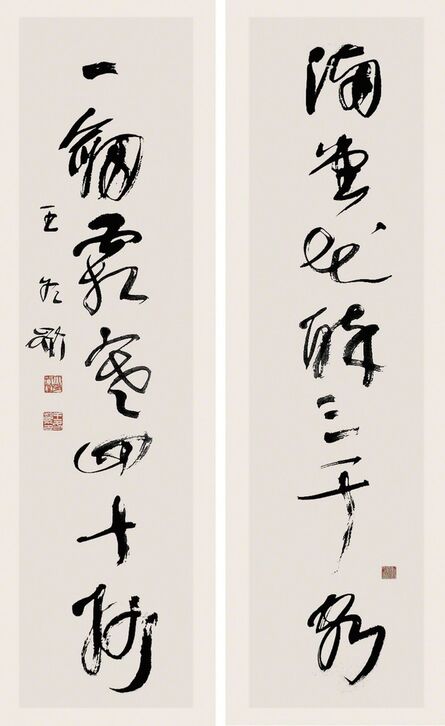 满堂花醉三千客
一剑霜寒四十州
王冬龄